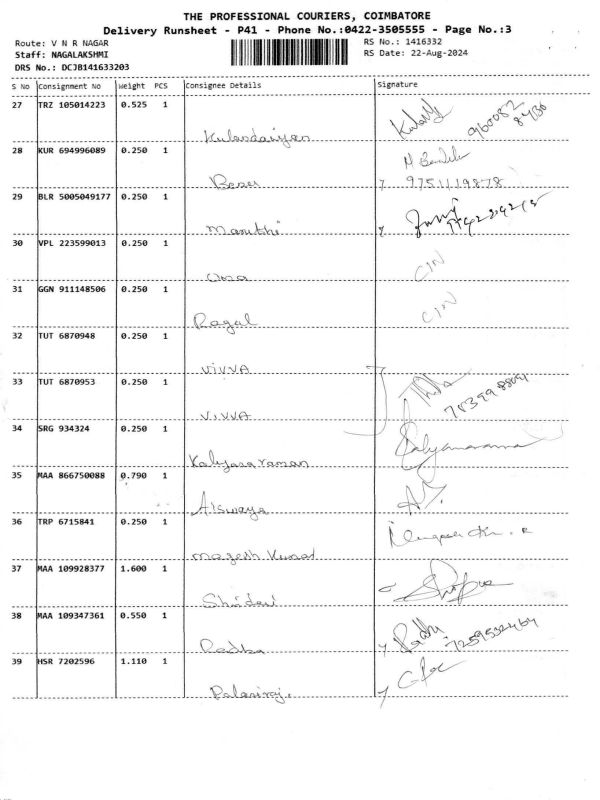 THE PROFESSIONAL COURIERS, COIMBATORE
Delivery Runsheet - P41 - Phone No.:0422-3505555 - Page No.:3
Route: V N R NAGAR
RS No.: 1416332
Staff: NAGALAKSHMI
RS Date: 22-Aug-2024
DRS No.: DCJB141633203
S No Consignment No Weight PCS Consignee Details Signature
27 TRZ 105014223 0.525 1
Kulandaiyan
28 KUR 694996089 0.250 1
9751119878
29 BLR 5005049177 0.250 1
Maruthi
30 VPL 223599013 0.250 1
Uma CIN
31 GGN 911148506 0.250 1
Ragal CIN
32 TUT 6870948 0.250 1
VIVVA
33 TUT 6870953 0.250 1
VIVVA
34 SRG 934324 0.250 1
Kalyanaraman Kalyanarama
35 MAA 866750088 0.790 1
Aiswarya
36 TRP 6715841 0.250 1
Magesh Kumar
37 MAA 109928377 1.600 1
Shridevi
38 MAA 109347361 0.550 1
Radha Radha
39 HSR 7202596 1.110 1
Palaniraj.